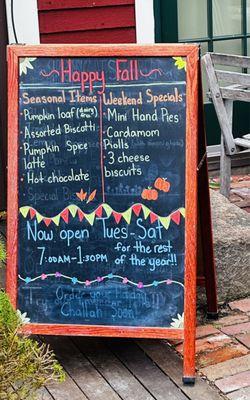 Happy Fall
Seasonal Items
• Pumpkin loaf (dairy free)
• Assorted Biscotti
• Pumpkin Spice
latte
• Hot chocolate
Weekend Specials
• Mini Hand Pies
• Cardamom
Rolls
• 3 cheese
biscuits
Now open Tues-Sat
7:00AM-1:30PM
for the rest
of the year!!
Order your
Challah Soon